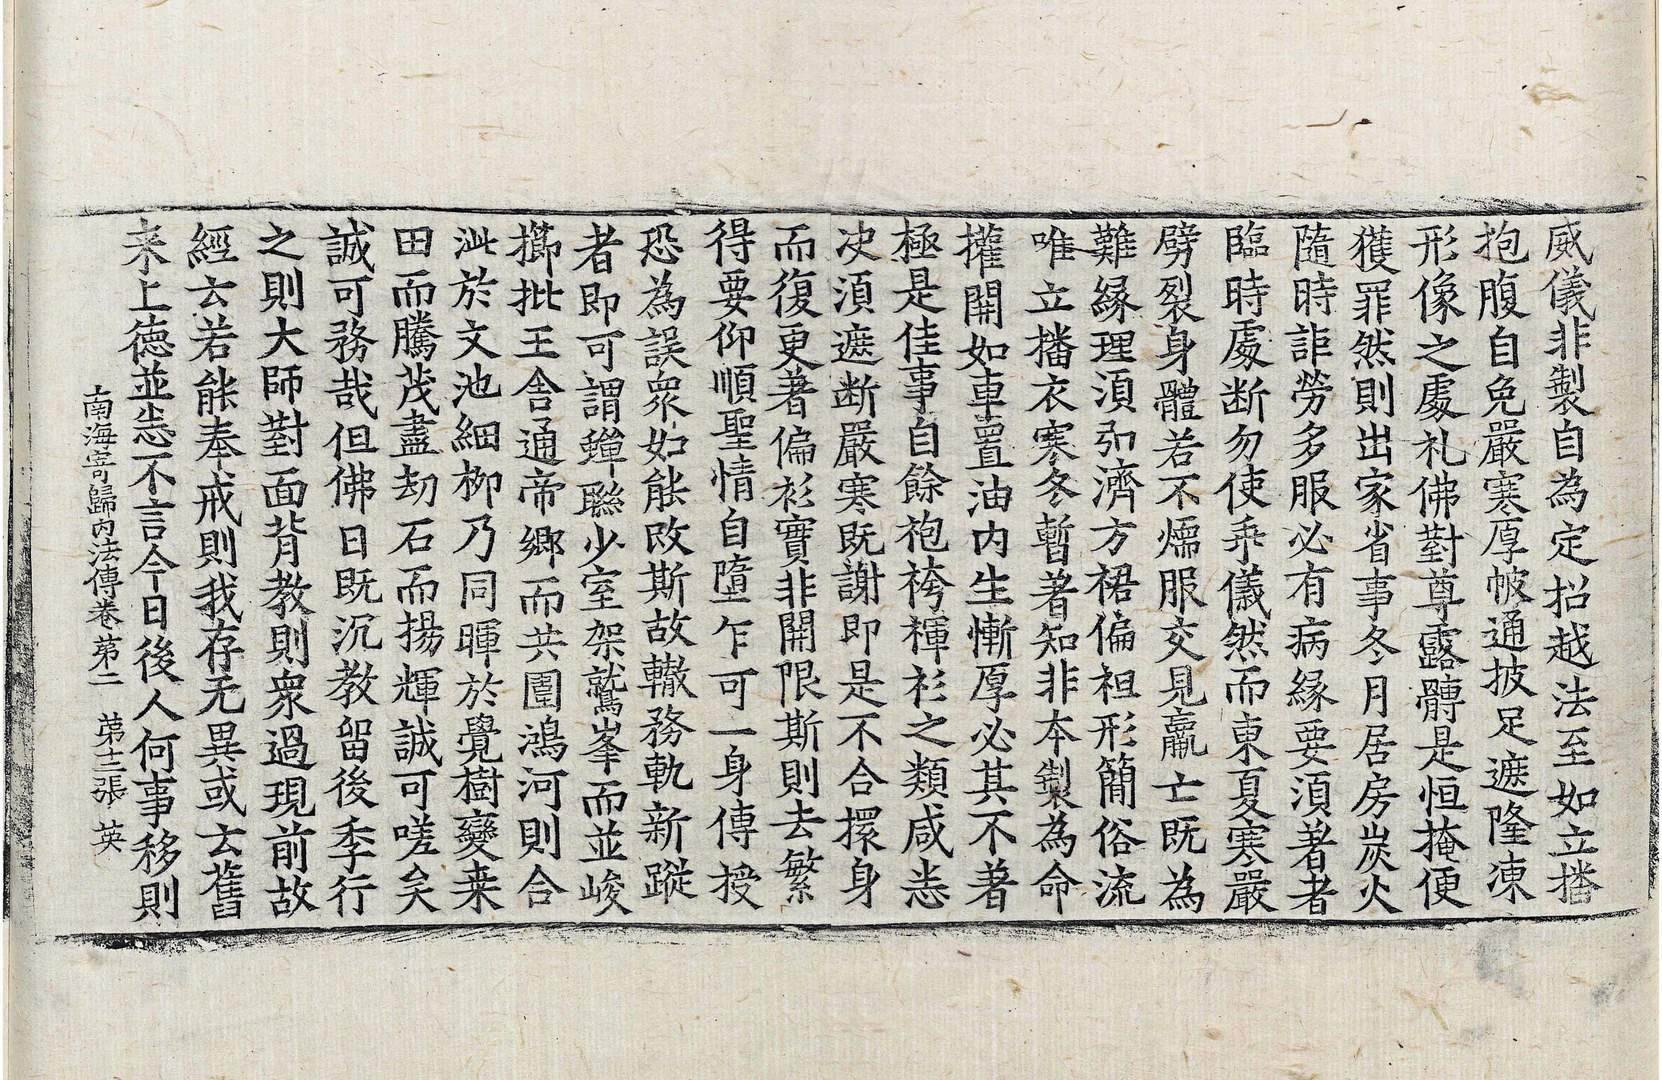 威儀非製自為定招越法至如立播
抱腹自免嚴寒厚帔通披足遮隆凍
形像之處礼佛對尊露髆是恒掩便
獲罪然則出家省事冬月居房炭火
隨時詎勞多服必有病緣要須著者
臨時處断勿使乖儀然而東夏寒嚴
劈裂身體若不煗服交見羸亡既為
難緣理須弘濟方裙偏袒形簡俗流
唯立播衣寒冬暫著知非本製為命
擁開如車置油內生慚厚必其不著
極是佳事自餘袍袴褌衫之類咸悉
决須遮断嚴寒既謝即是不合擐身
而復更著偏衫實非開限斯則去繁
得要仰順聖情自墮乍可一身傳授
恐為誤衆如能改斯故轍務軌新蹤
者即可謂蟬聯少室架鷲峯而並峻
擳批王舍通帝鄉而共圍鴻河則合
泚於文池細柳乃同暉於覺樹變桒
田而騰茂盡劫石而揚輝誠可嗟矣
誠可務哉但佛日既沉教留後季行
之則大師對面背教則衆過現前故
經云若能奉戒則我存无異或云舊
来上德並悉不言今日後人何事移則
南海寄歸內法傳卷第二 第十三張 英